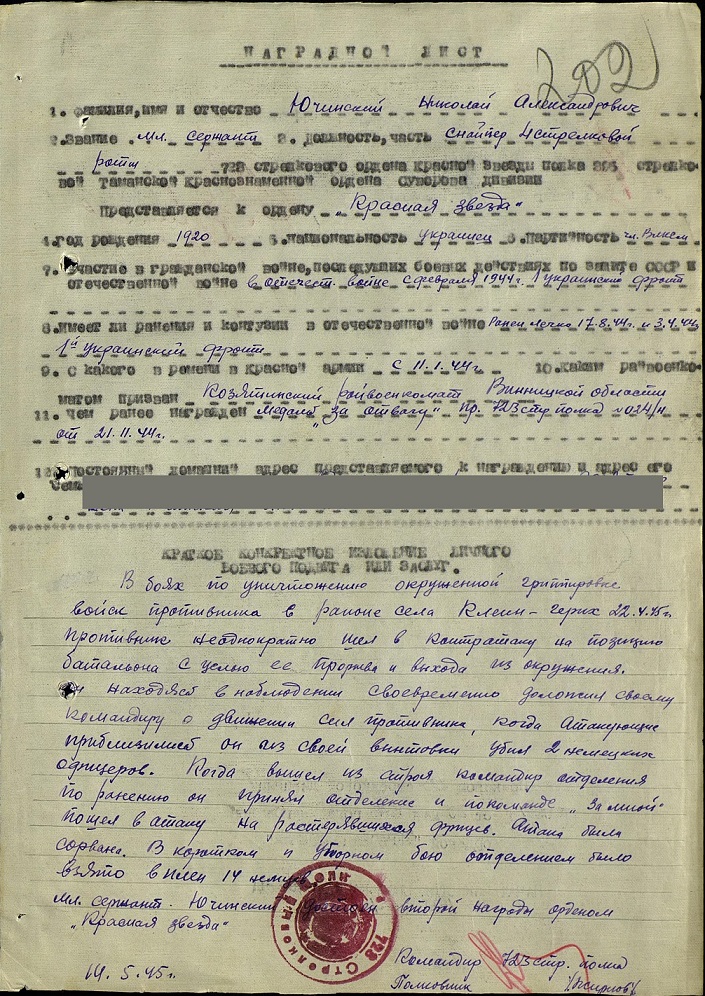 НАГРАДНОЙ ЛИСТ
202
1. Фамилия, имя и отчество Ючинский Николай Александрович
2. Звание мл. сержант 3. Должность, часть снайпер 4 стрелковой
роты 723 стрелкового ордена Красной Звезды полка 395 стрелко-
вой Таманской Краснознаменной ордена Суворова дивизии
Представляется к ордену „Красная звезда"
4. Год рождения 1920 5. Национальность украинец 6. Партийность чл. Влксм
7. Участие в гражданской войне, последущих боевых действиях по защите СССР и
отечественной войне в отечест. войне с февраля 1944 г. 1 украинский фронт
8. Имеет ли ранения и контузии в отечественной войне Ранен легко 17.8.44 г. и 3.4.44 г.
1й украинский фронт
9. С какого времени в Красной армии с 11.1.44 г. 10. Каким райвоенко-
матом призван Козятинский райвоенкомат Винницкой области
11. Чем ранее награжден медаль „За отвагу" Пр. 723 стр полка № 024/н
от 21.11.44 г.
12. Постоянный домашний адрес представляемого к награждению и адрес его
Семьи
КРАТКОЕ КОНКРЕТНОЕ ИЗЛОЖЕНИЕ ЛИЧНОГО
БОЕВОГО ПОДВИГА ИЛИ ЗАСЛУГ.
В боях по уничтожению окруженной группировке
войск противника в районе села Клеин-герих 22.4.45 г.
Противник неоднократно шел в контратаку на позицию
батальона с целью ее прорыва и выхода из окружения.
Он находясь в наблюдении своевременно доложил своему
командиру о движении сил противника, когда атакующие
приблизились он из своей винтовки убил 2 немецких
офицеров. Когда вышел из строя командир отделения
по ранению он принял отделение и по команде „За мной"
пошел в атаку на растерявшихся фрицев. Атака была
сорвана. В коротком и упорном бою отделением было
взято в плен 14 немцев.
Мл. сержант Ючинский достоен второй награды орденом
„Красная звезда"
723 Стрелковый полк
Командир 723 стр. полка
19.5.45 г. Полковник